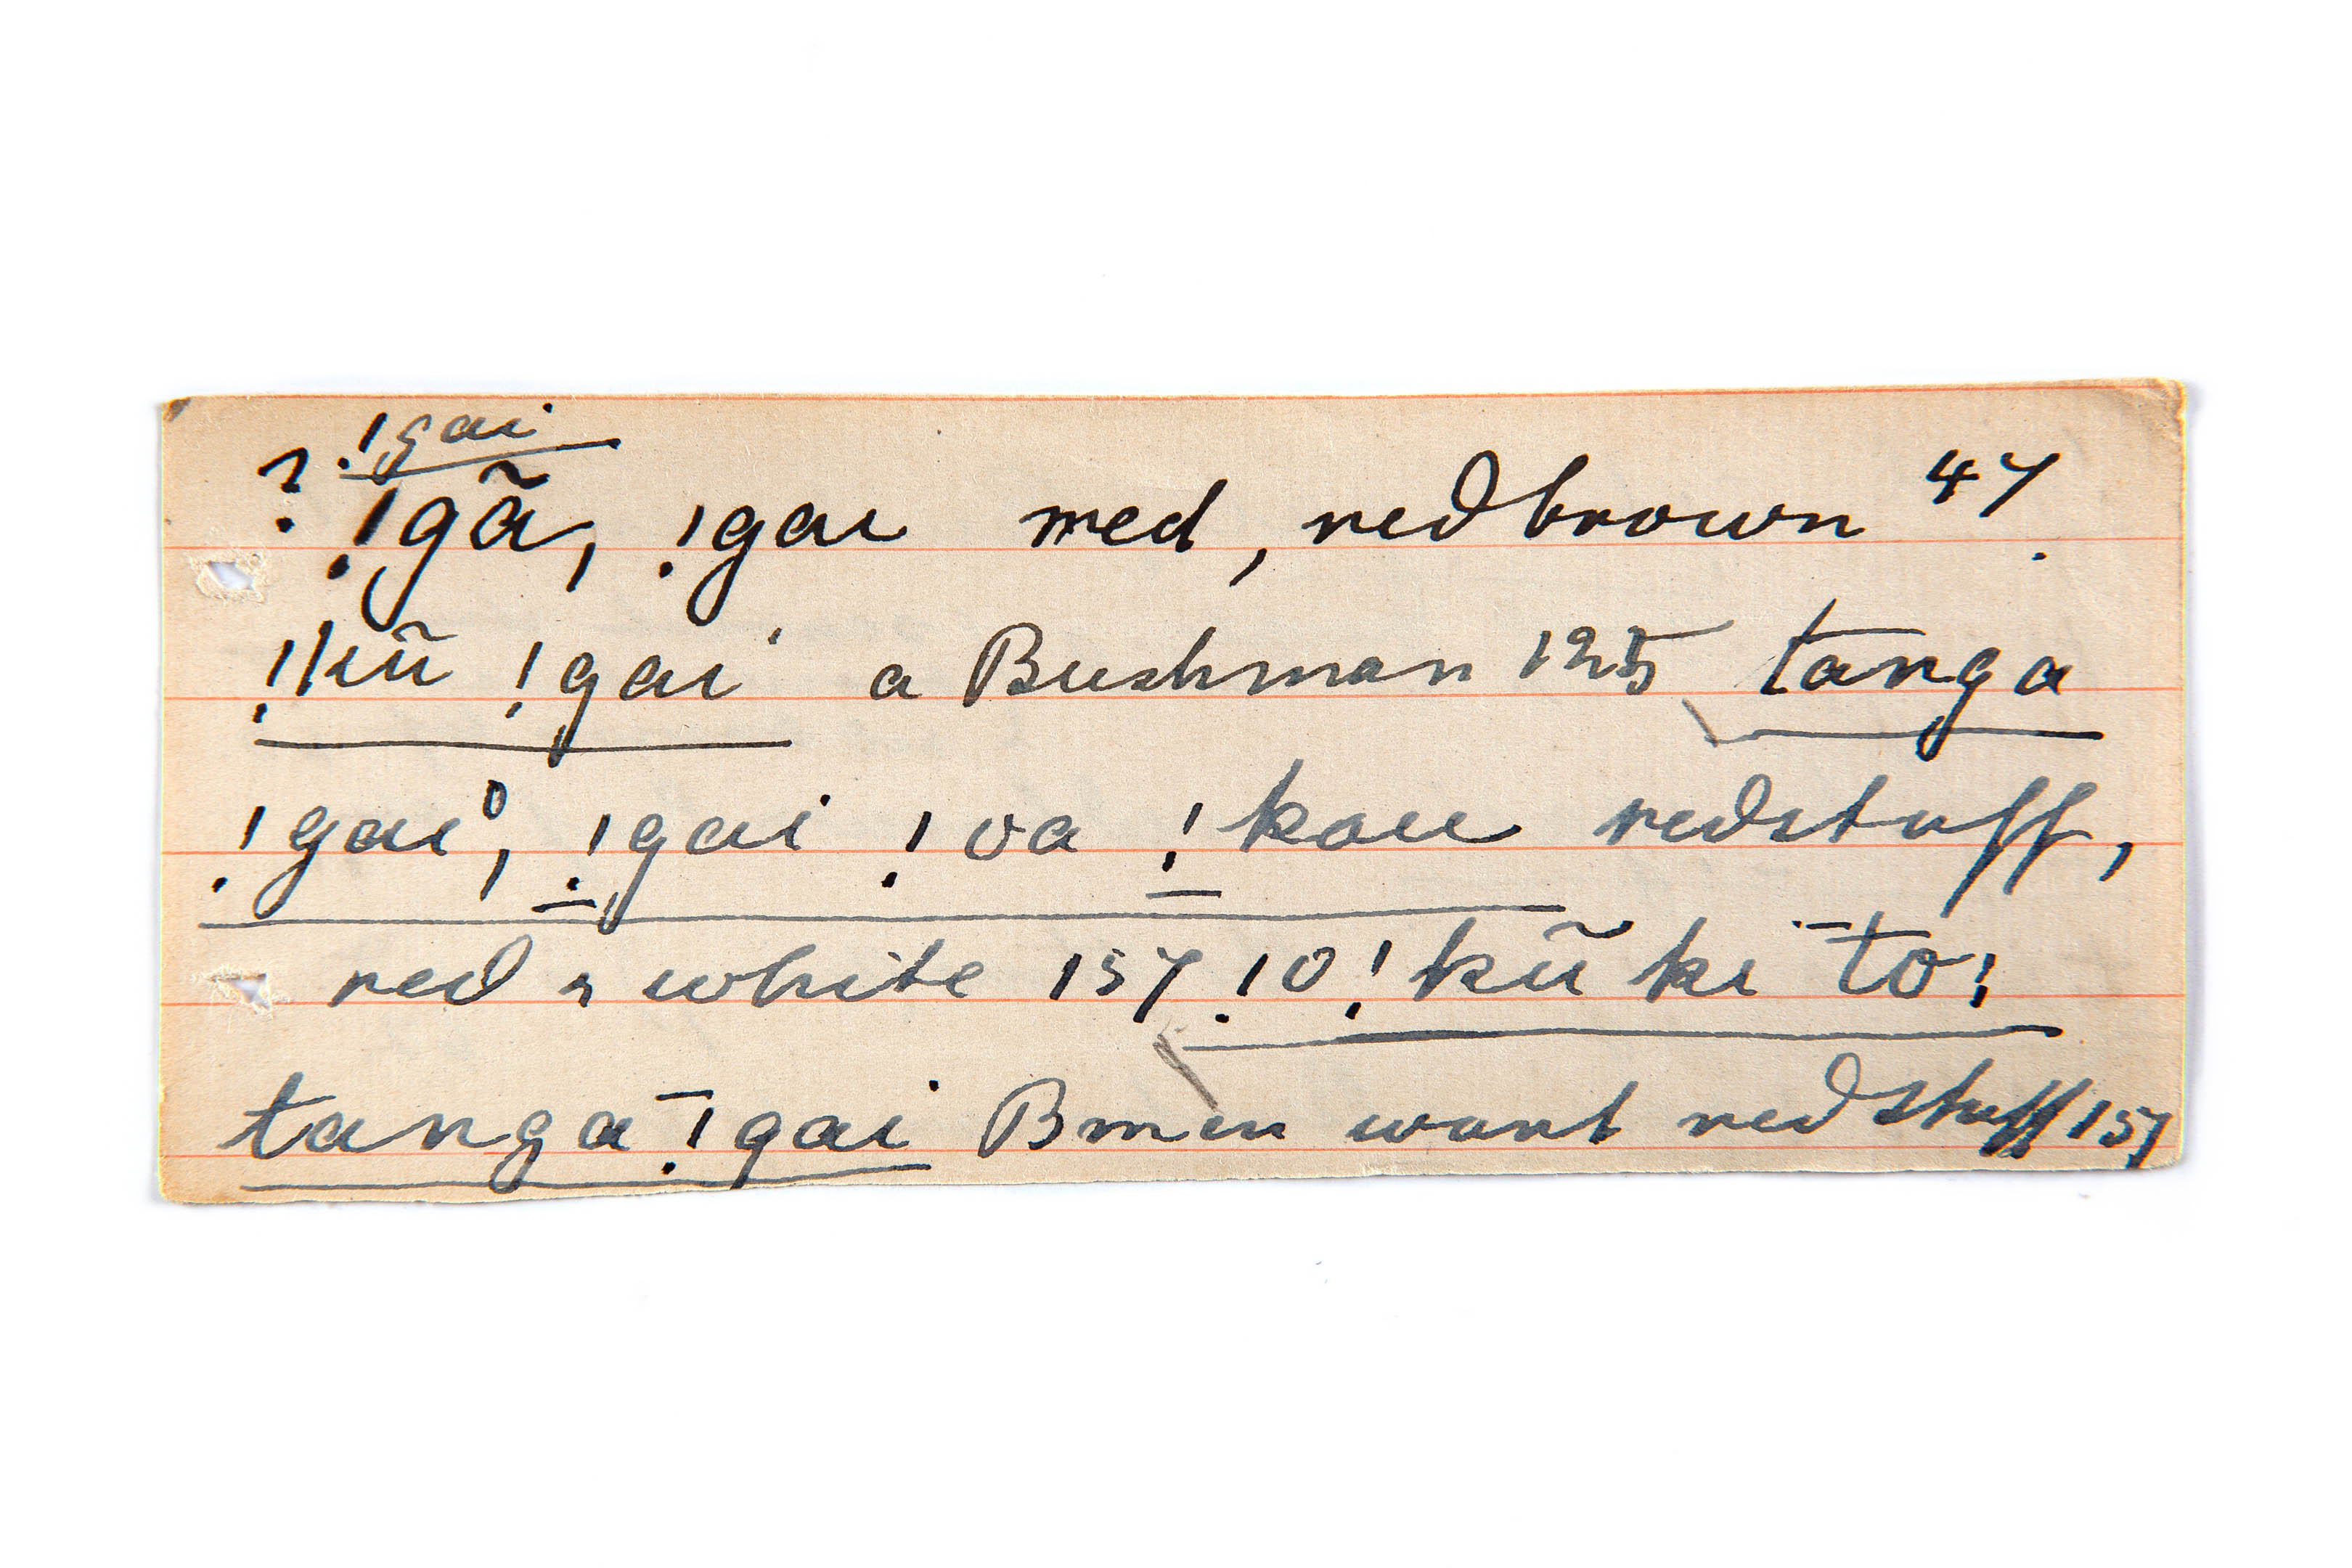 !gai
? !gã, !gai med, redbrown 47.
!kũ !gai a Bushman 125 tanga
!gai, !gai !oa !kau redstuff,
red & white 157 !0!kũ ki to:
tanga !gai Bmen want redstuff 157